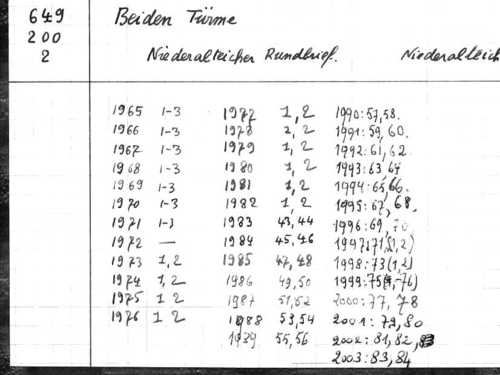 649
200
2
Beiden Türme
Niederalteicher Rundbrief. Niederalteich
1965 1-3 1977 1,2 1990:57,58.
1966 1-3 1978 1,2 1991:59,60.
1967 1-3 1979 1,2 1992:61,62
1968 1-3 1980 1,2 1993:63,64
1969 1-3 1981 1,2 1994:65,66.
1970 1-3 1982 1,2 1995:67,68.
1971 1-3 1983 43,44 1996:69,70
1972 — 1984 45,46 1997:71(1,2)
1973 1,2 1985 47,48 1998:73(1,2)
1974 1,2 1986 49,50 1999:75
1975 1 2 1987 51,52 2000:77,78
1976 1 2 1988 53,54 2001:79,80
1989 55,56 2002:81,82,
2003:83,84